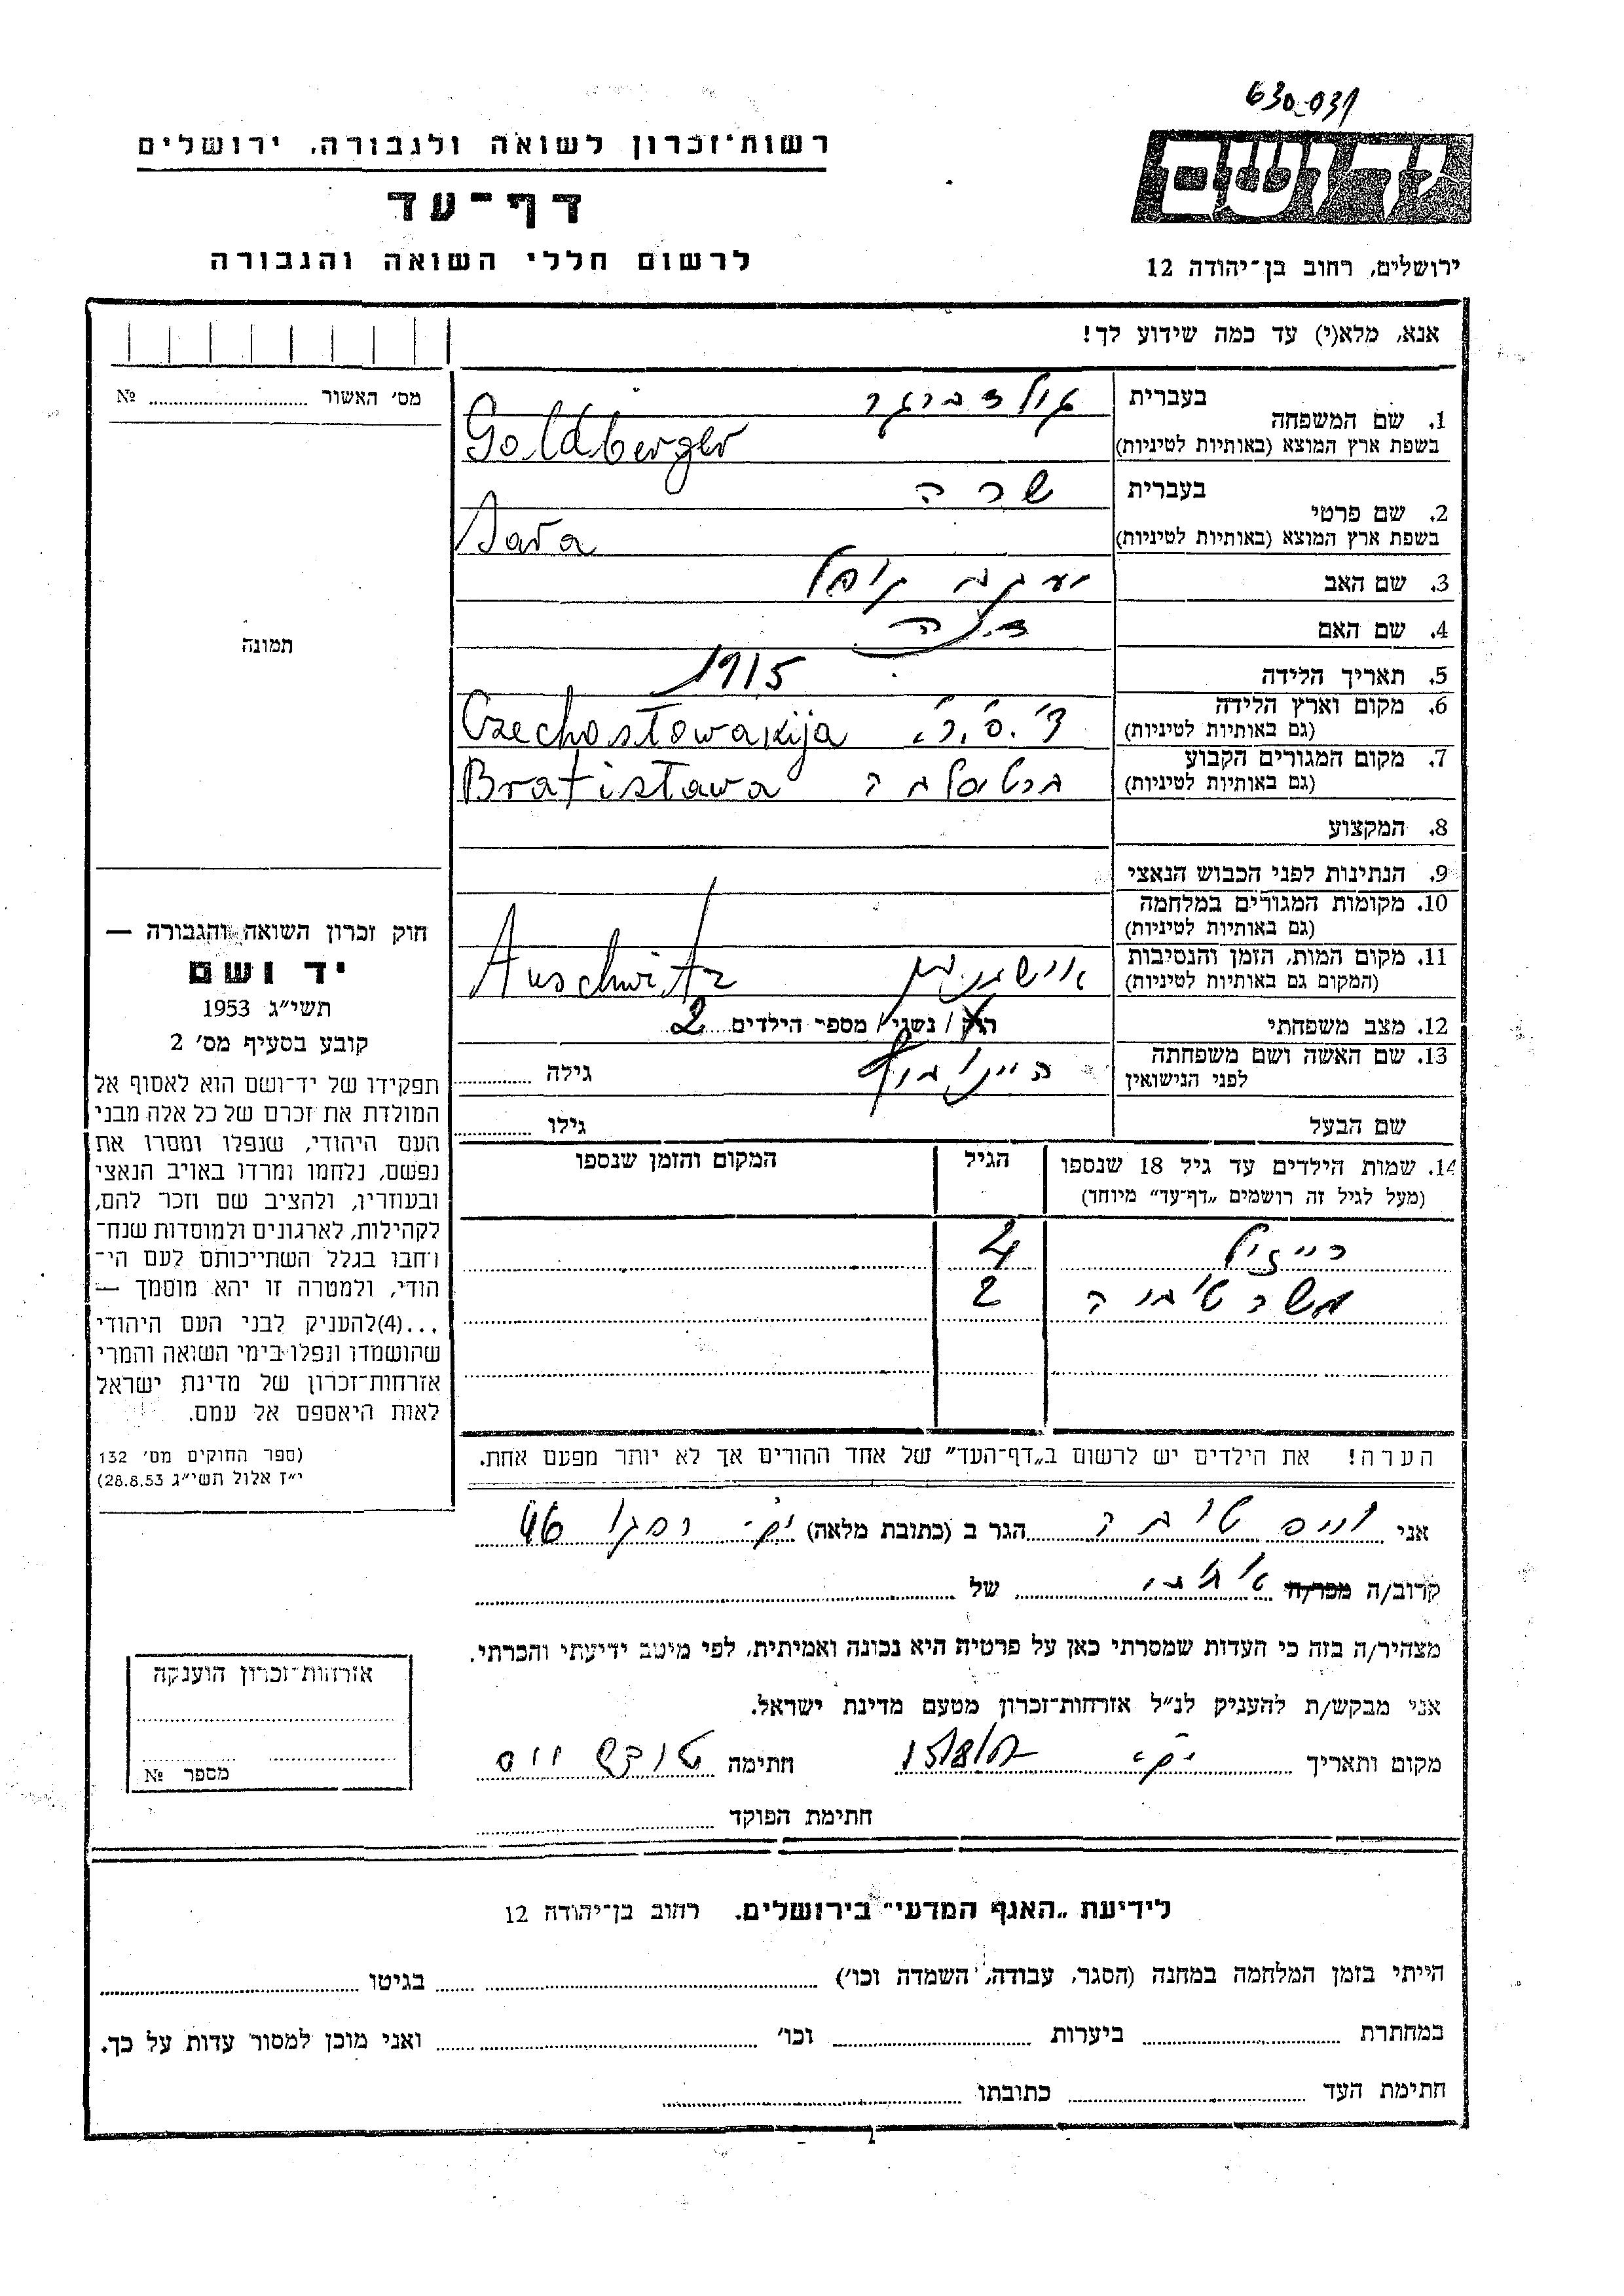 630-031
רשות־זכרון לשואה ולגבורה, ירושלים
דף־עד
לרשום חללי השואה והגבורה
ידושם
ירושלים, רחוב בן־יהודה 12
אנא, מלא(י) עד כמה שידוע לך!
מס׳ האשור № 
1. שם המשפחה בעברית גולדברגר
בשפת ארץ המוצא (באותיות לטיניות) Goldberger
2. שם פרטי בעברית שרה
בשפת ארץ המוצא (באותיות לטיניות) Sara
3. שם האב יעקב קופל
4. שם האם
5. תאריך הלידה 1915
6. מקום וארץ הלידה (גם באותיות לטיניות) צ׳.ס.ר. Czechosłowakija
7. מקום המגורים הקבוע (גם באותיות לטיניות) ברטיסלבה Bratisława
8. המקצוע
9. הנתינות לפני הכבוש הנאצי
10. מקומות המגורים במלחמה (גם באותיות לטיניות)
11. מקום המות, הזמן והנסיבות (המקום גם באותיות לטיניות) Auschwitz
12. מצב משפחתי רוק / נשוי / מספר הילדים 2
13. שם האשה ושם משפחתה לפני הנישואין גילה
שם הבעל גילו
14. שמות הילדים עד גיל 18 שנספו (מעל לגיל זה רושמים „דף־עד״ מיוחד) הגיל המקום והזמן שנספו
רייזיל 4
2
הערה! את הילדים יש לרשום ב„דף־העד״ של אחד ההורים אך לא יותר מפעם אחת.
תמונה
חוק זכרון השואה והגבורה —
יד ושם
תשי״ג 1953
קובע בסעיף מס׳ 2
תפקידו של יד־ושם הוא לאסוף אל
המולדת את זכרם של כל אלה מבני
העם היהודי, שנפלו ומסרו את
נפשם, נלחמו ומרדו באויב הנאצי
ובעוזריו, ולהציב שם וזכר להם,
לקהילות, לארגונים ולמוסדות שנח־
רחבו בגלל השתייכותם לעם הי־
הודי, ולמטרה זו יהא מוסמך —
...(4)להעניק לבני העם היהודי
שהושמדו ונפלו בימי השואה והמרי
אזרחות־זכרון של מדינת ישראל
לאות היאספם אל עמם.
(ספר החוקים מס׳ 132
י״ז אלול תשי״ג 28.8.53)
אני וייס טובה הגר ב (כתובת מלאה) 46
קרוב/ה מכר/ה של
מצהיר/ה בזה כי העדות שמסרתי כאן על פרטיה היא נכונה ואמיתית, לפי מיטב ידיעתי והכרתי.
אני מבקש/ת להעניק לנ״ל אזרחות־זכרון מטעם מדינת ישראל.
מקום ותאריך חתימה
חתימת הפוקד
אזרחות־זכרון הוענקה
מספר №
לידיעת „האגף המדעי״ בירושלים. רחוב בן־יהודה 12
הייתי בזמן המלחמה במחנה (הסגר, עבודה, השמדה וכו׳) בגיטו
במחתרת ביערות וכו׳ ואני מוכן למסור עדות על כך.
חתימת העד כתובתו